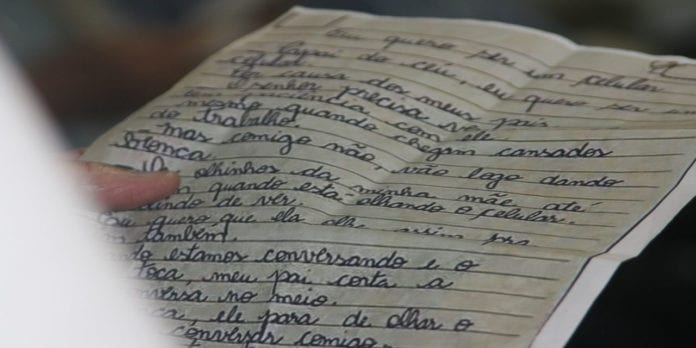 Eu quero ser um celular
Papai do céu, eu quero ser um
celular.
Por causa dos meus pais
O senhor precisa ver
tem paciência com ele
mesmo quando chegam cansados
do trabalho.
mas comigo não, vão logo dando
Os olhinhos da minha mãe até
quando está olhando o celular.
de ver.
Eu quero que ela olhe assim pra
também.
estamos conversando e o
toca, meu pai corta a
no meio.
ele para de olhar o
conversar comigo.